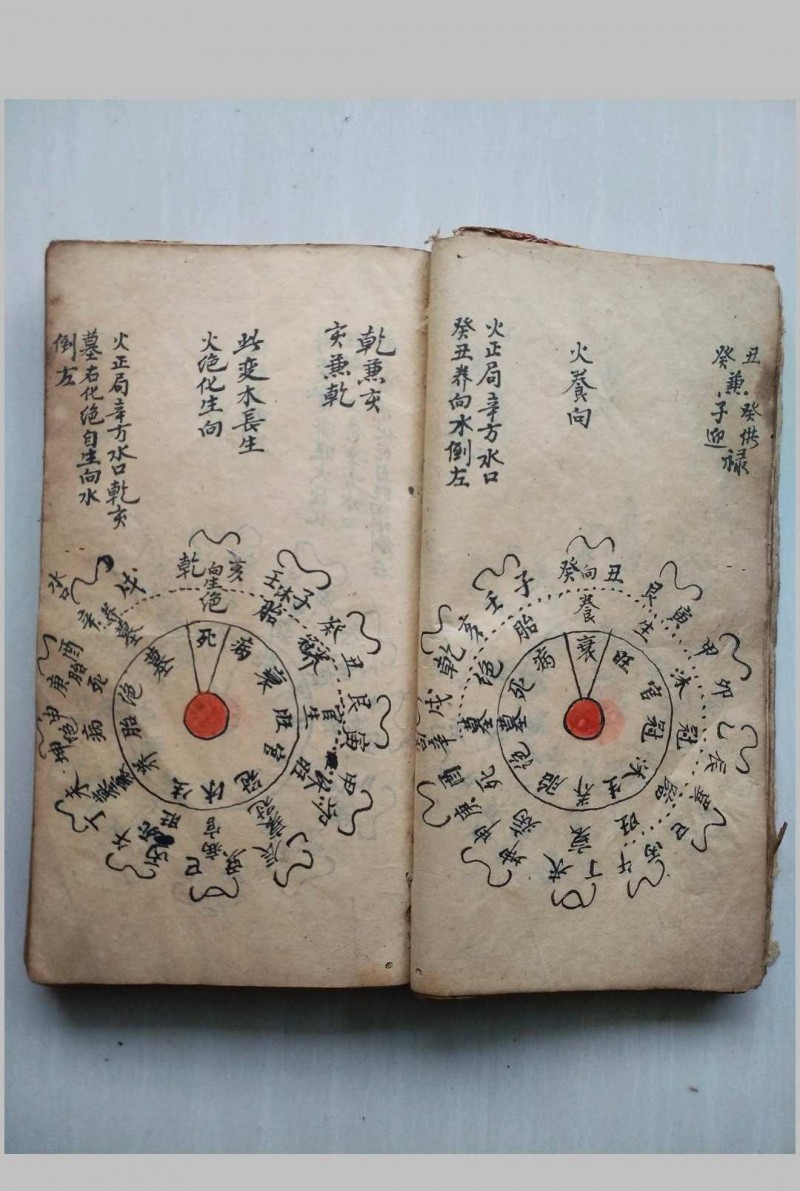 丑 癸供禄
癸兼子迎
火養向
火正局辛方水口
癸丑养向水倒左
癸向丑
養
艮寅
生
甲卯
沐
乙辰
冠
巽巳
臨
丙午
旺
丁未
衰
病
庚
死
辛戌
墓
乾亥
绝
壬子
胎
衰
旺
官
冠
沐
生
养
胎
绝
墓
死
病
乾兼亥
亥兼乾
此变木長生
火绝化生向
火正局辛方水口乾亥
墓右化绝自生向水
倒左
乾向亥
生
绝
壬沐子
胎
癸丑
艮寅
官
生
甲卯
旺
辰
巳
病
官
午
死
旺
丁未
坤申
绝
病
庚酉
胎
死
辛戌
养
墓
死
病
衰
旺
官
冠
沐
生
养
胎
绝
墓